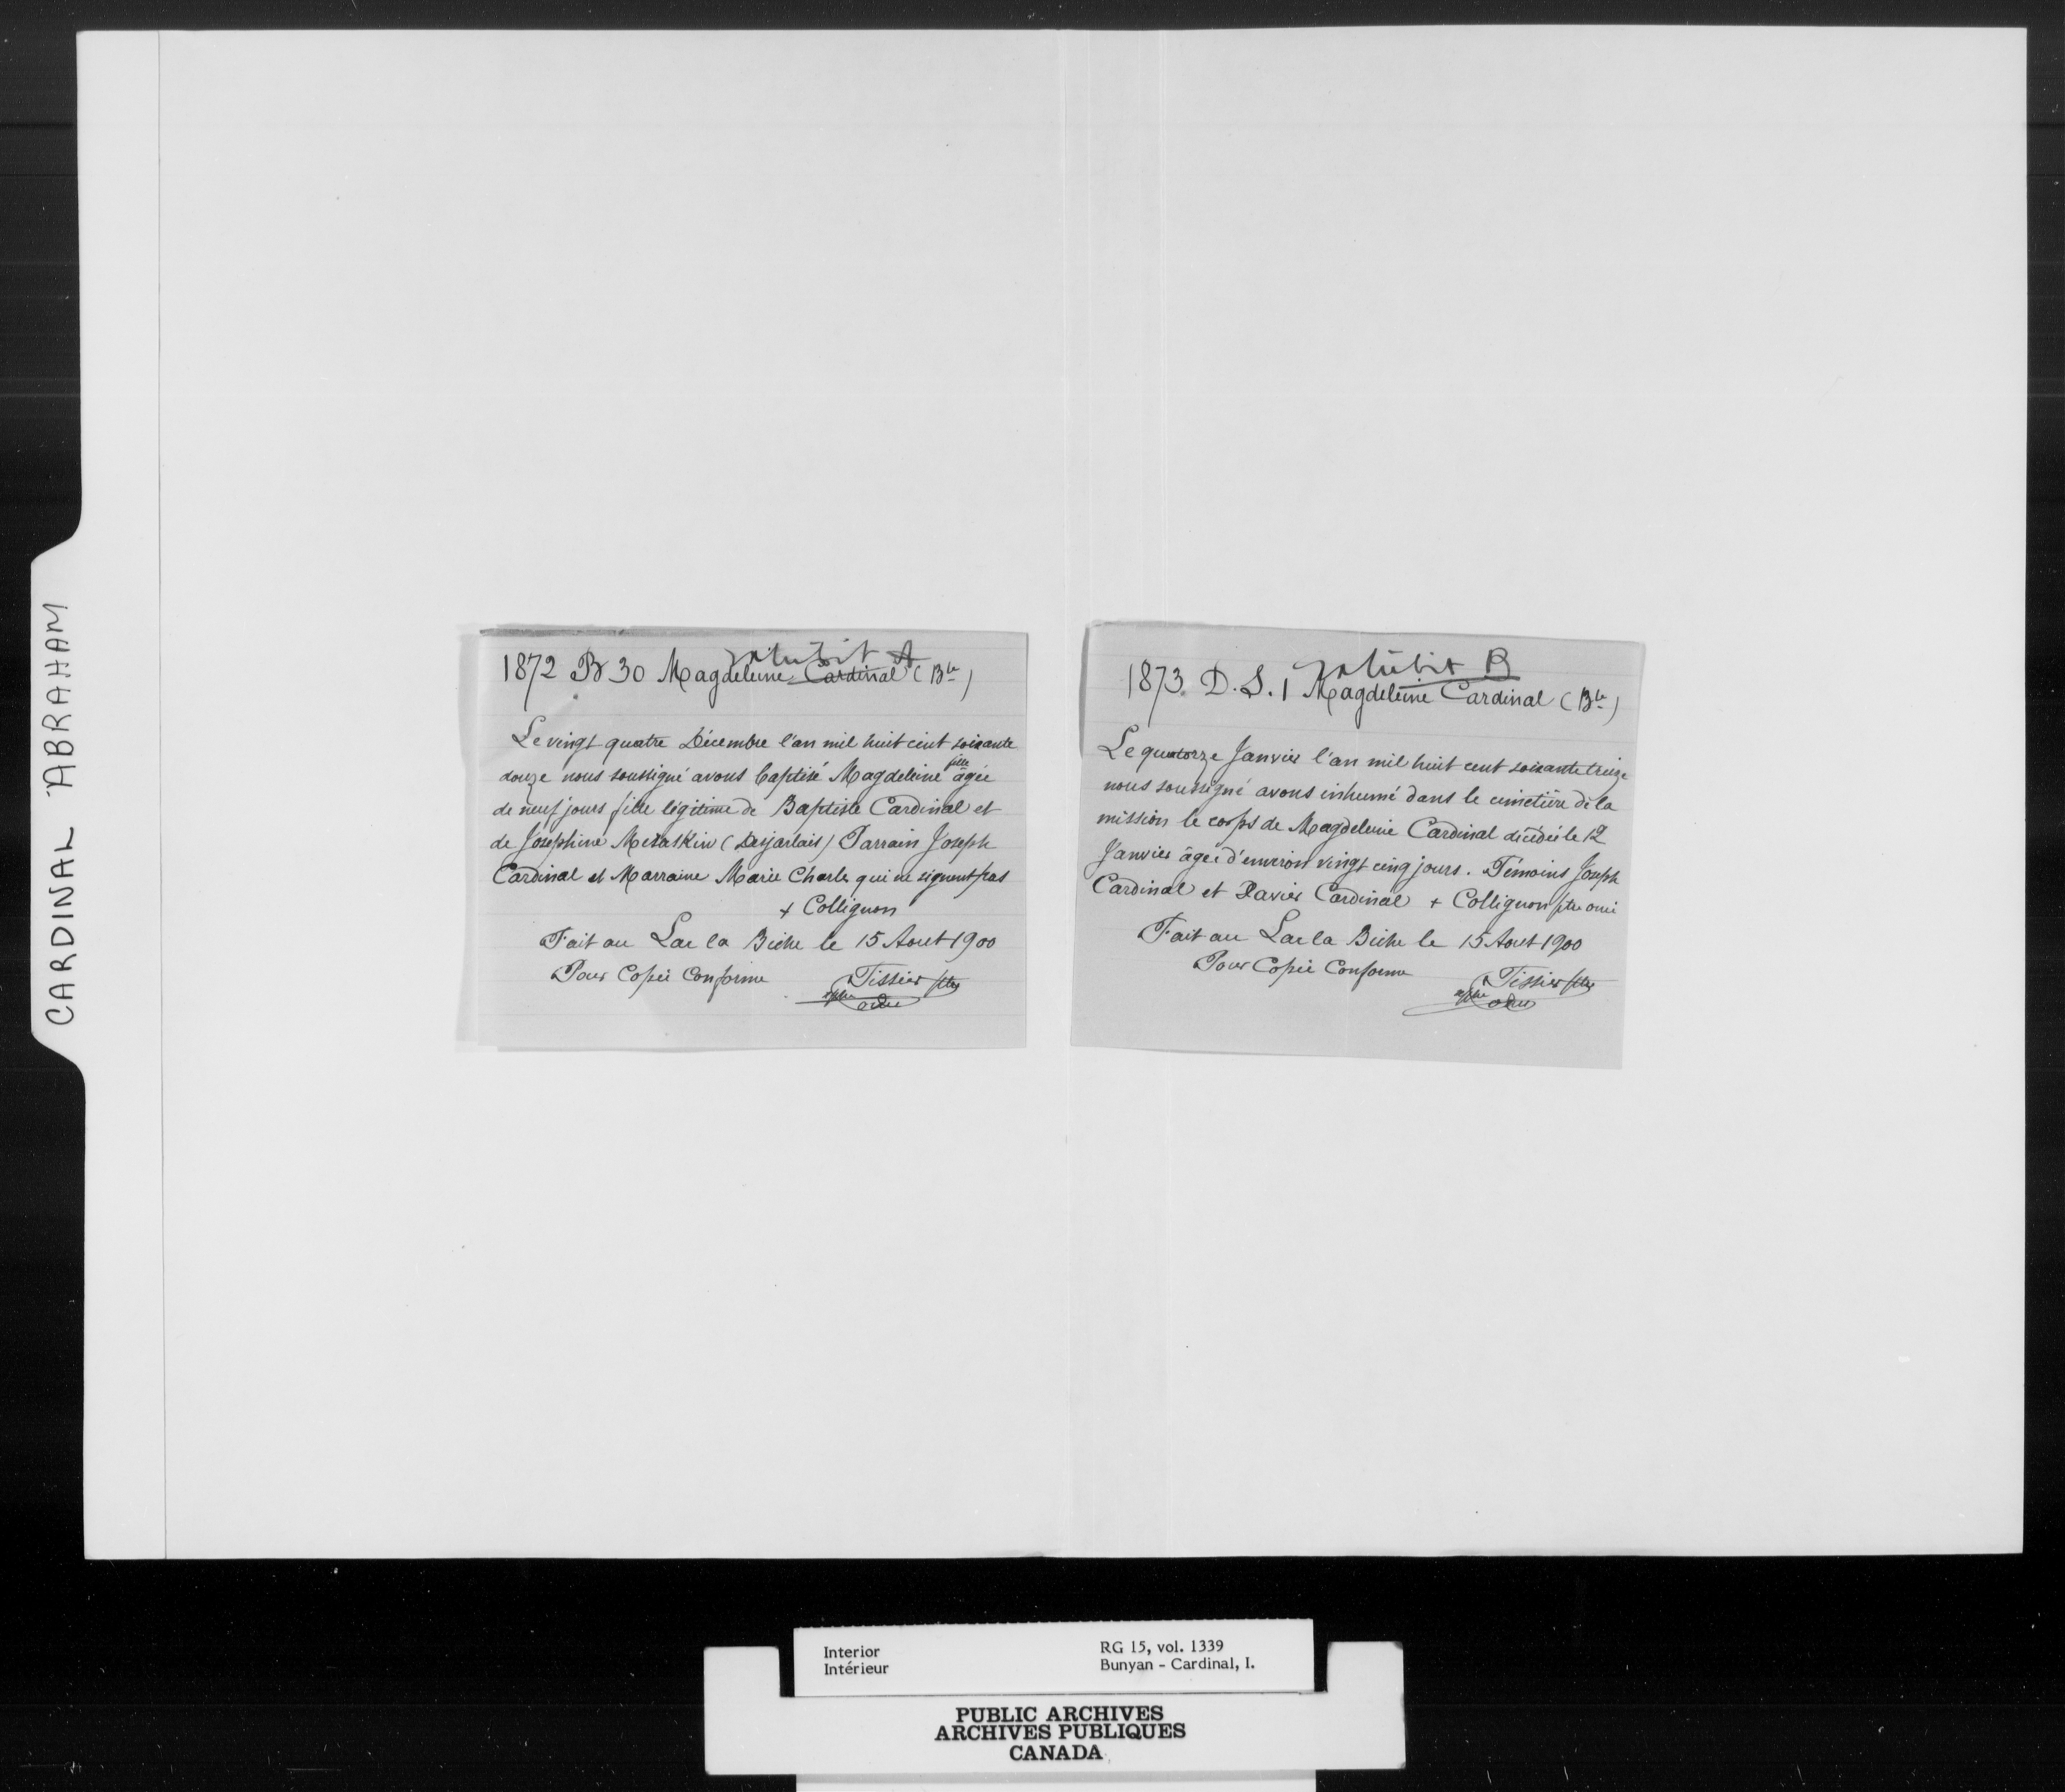 CARDINAL ABRAHAM
Exhibit A
1872 B 30 Magdeleine Cardinal (Bte)
Le vingt quatre Décembre l'an mil huit cent soixante
douze nous soussigné avons baptisé Magdeleine âgée
de neuf jours fille légitime de Baptiste Cardinal et
de Joséphine (Desjarlais) Parrain Joseph
Cardinal et Marraine Marie Charles qui ne signent pas
+ Collignon
Fait au Lac la Biche le 15 Aout 1900
Pour Copie Conforme Tissier ptre
omi
Exhibit B
1873 D.S. 1 Magdeleine Cardinal (Bte)
Le quatorze Janvier l'an mil huit cent soixante treize
nous soussigné avons inhumé dans le cimetière de la
mission le corps de Magdeleine Cardinal décédée le 12
Janvier âgée d'environ vingt cinq jours. Témoins Joseph
Cardinal et Xavier Cardinal + Collignon ptre omi
Fait au Lac la Biche le 15 Aout 1900
Pour Copie Conforme Tissier ptre
omi
Interior RG 15, vol. 1339
Intérieur Bunyan - Cardinal, I.
PUBLIC ARCHIVES
ARCHIVES PUBLIQUES
CANADA